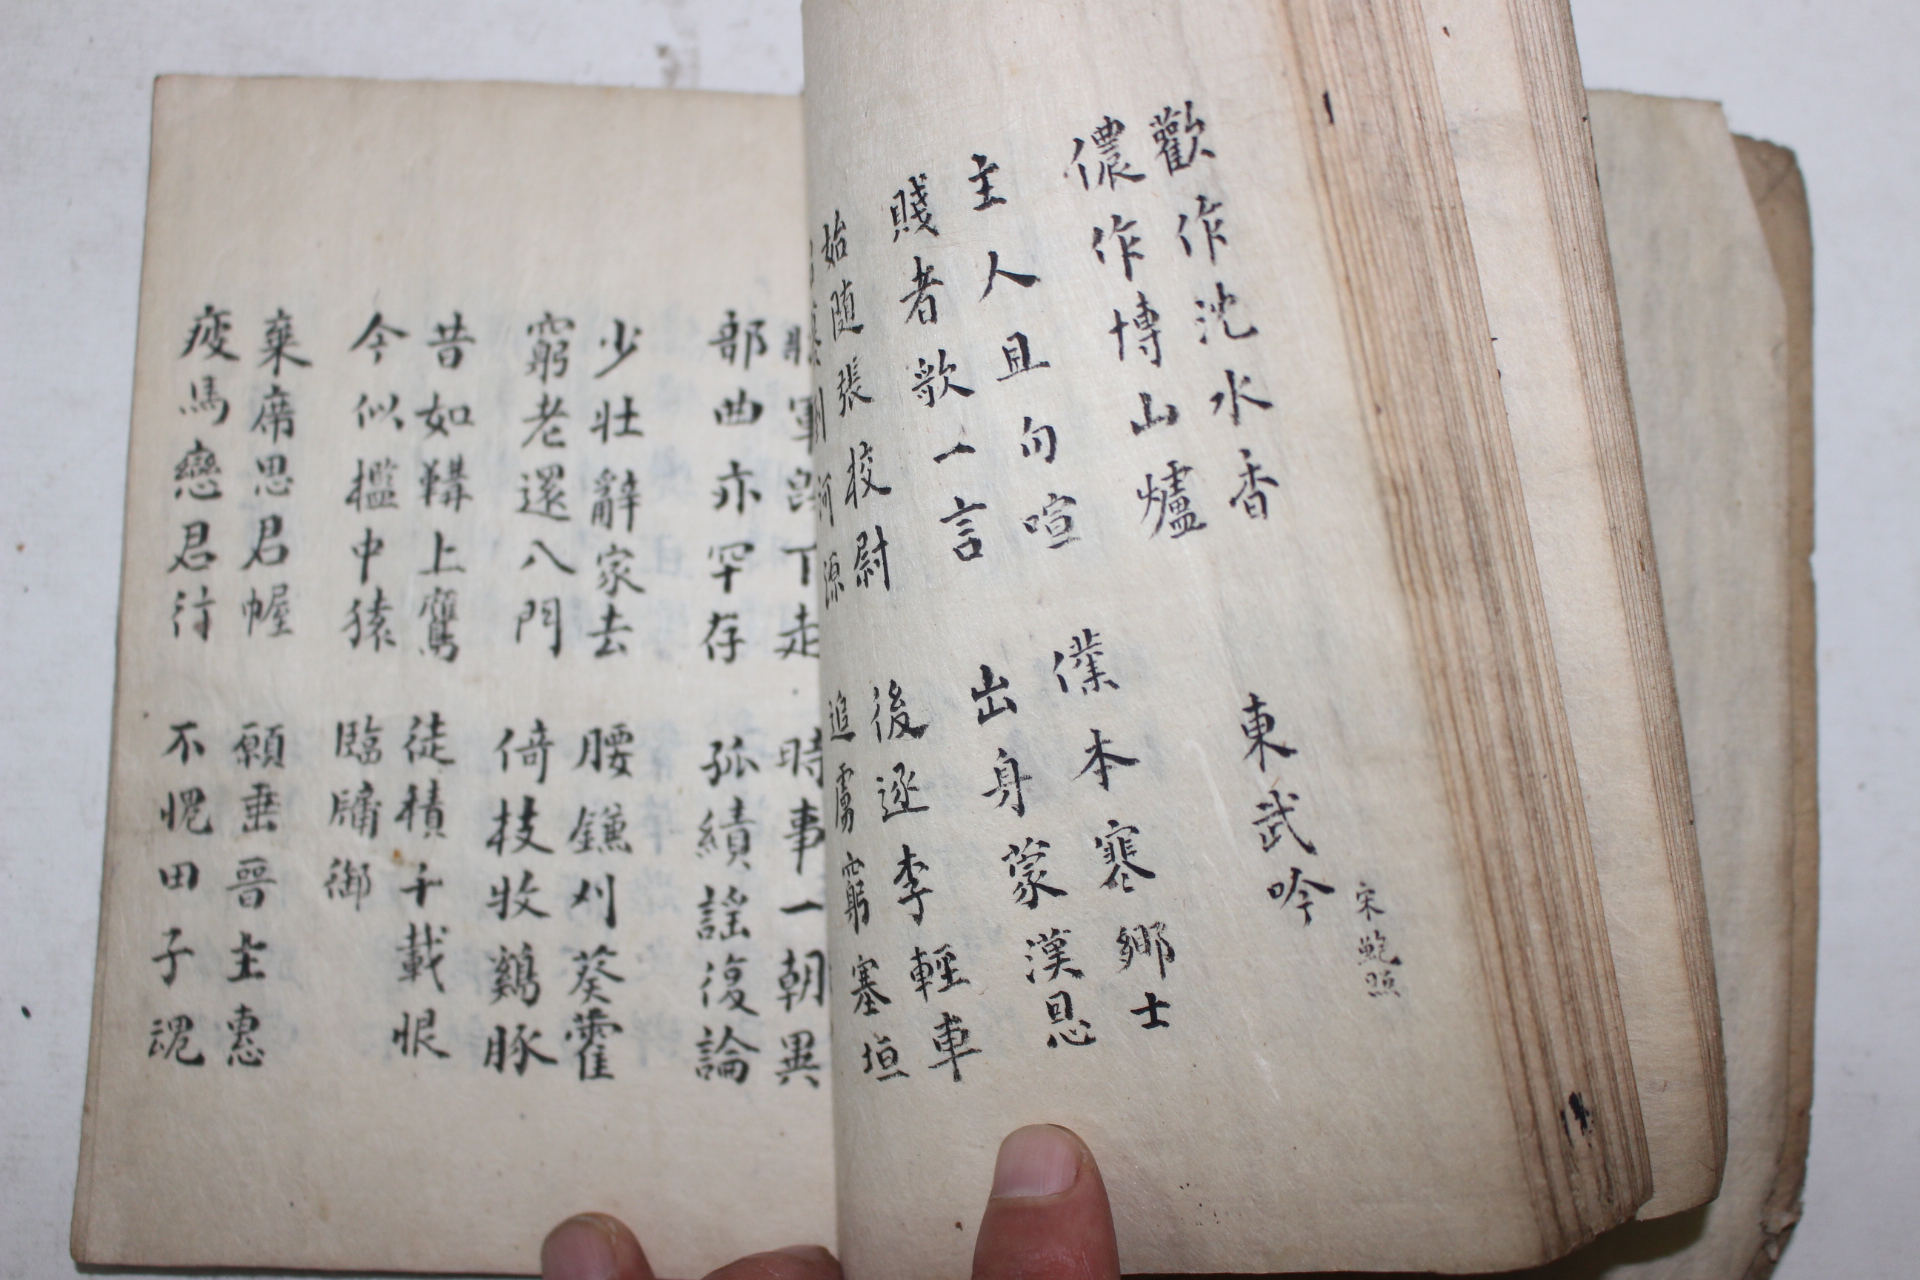 歡作沈水香
儂作博山爐
東武吟 宋鮑照
主人且勿喧
賤者歌一言
僕本寒鄉士
出身蒙漢恩
始隨張校尉
河源
後逐李輕車
追虜窮塞垣
軍 下走
部曲亦罕存
時事一朝異
孤績謠復論
少壯辭家去
窮老還八門
腰鐮刈葵藿
倚杖牧鷄豚
昔如鞲上鷹
今似檻中猿
徒積千載恨
臨牗御
棄席思君幄
疲馬戀君行
願垂晉主惠
不愧田子魂